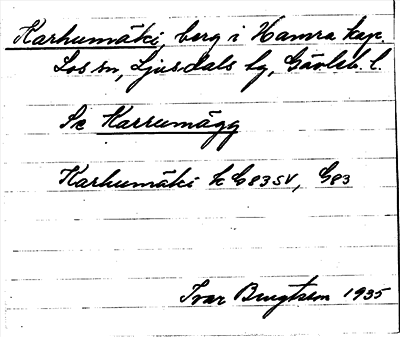 Karhumäki, berg i Hamra kap.
Los sn, Ljusdals tg, Gävleb. l.
Se Karrumägg
Karhumäki k G83SV, G83
Ivar Brugtsem 1935